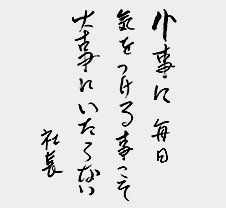 小事に 毎日
気をつける事こそ
大事にいたらない
社長